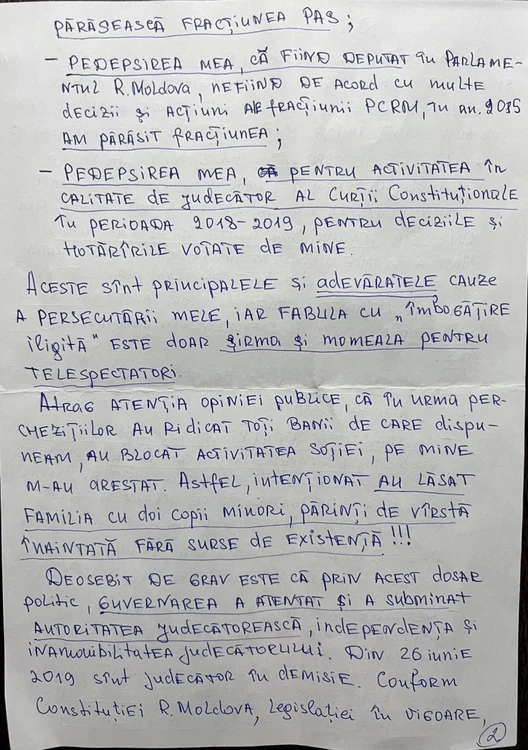 PĂRĂSEASCĂ FRACȚIUNEA PAS;
- PEDEPSIREA MEA, CĂ FIIND DEPUTAT în PARLAME-
NTUL R.Moldova, NEFIIND DE ACORD cu multe
decizii și ACȚIUNI ALE fRACȚIUNII PCRM, în an. 2015
AM PĂRĂSIT fRACȚIUNEA;
- PEDEPSIREA MEA, PENTRU ACTIVITATEA în
CALITATE de judecător AL Curții Constituționale
în perioada 2018-2019, pentru deciziile și
HOTĂRÎRILE VOTATE DE MINE.
ACESTE sînt principalele și adevăratele cauze
A PERSECUTĂRII MELE, IAR FABULA cu „îmbogățire
iligită" ESTE DOAR șirma și momeala pentru
TELESPECTATORI.
ATRAG ATENȚIA OPINIEI publice, că în urma PER-
CHEZIȚIILOR AU RidicAT TOȚI BANii DE CARE dispu-
NEAM, AU BLOCAT ACTIVITATEA SOȚIEI, PE MINE
M-AU ARESTAT. Astfel, intenționat AU LĂSAT
FAMILIA cu doi copii minori, părinți de vîrstă
ÎNAINTATĂ FĂRĂ SURSE de EXISTENȚĂ!!!
DEOSEBIT DE GRAV ESTE CĂ PRIN ACEST DOSAR
politic, GUVERNAREA A ATENTAT și A subminat
AUTORITATEA judecătorească, independența și
INAMOVIBILITATEA judecătorului. Din 26 iunie
2019 sînt judecător în demisie. Conform
Constituției R.Moldova, Legislației în vigoare,
2